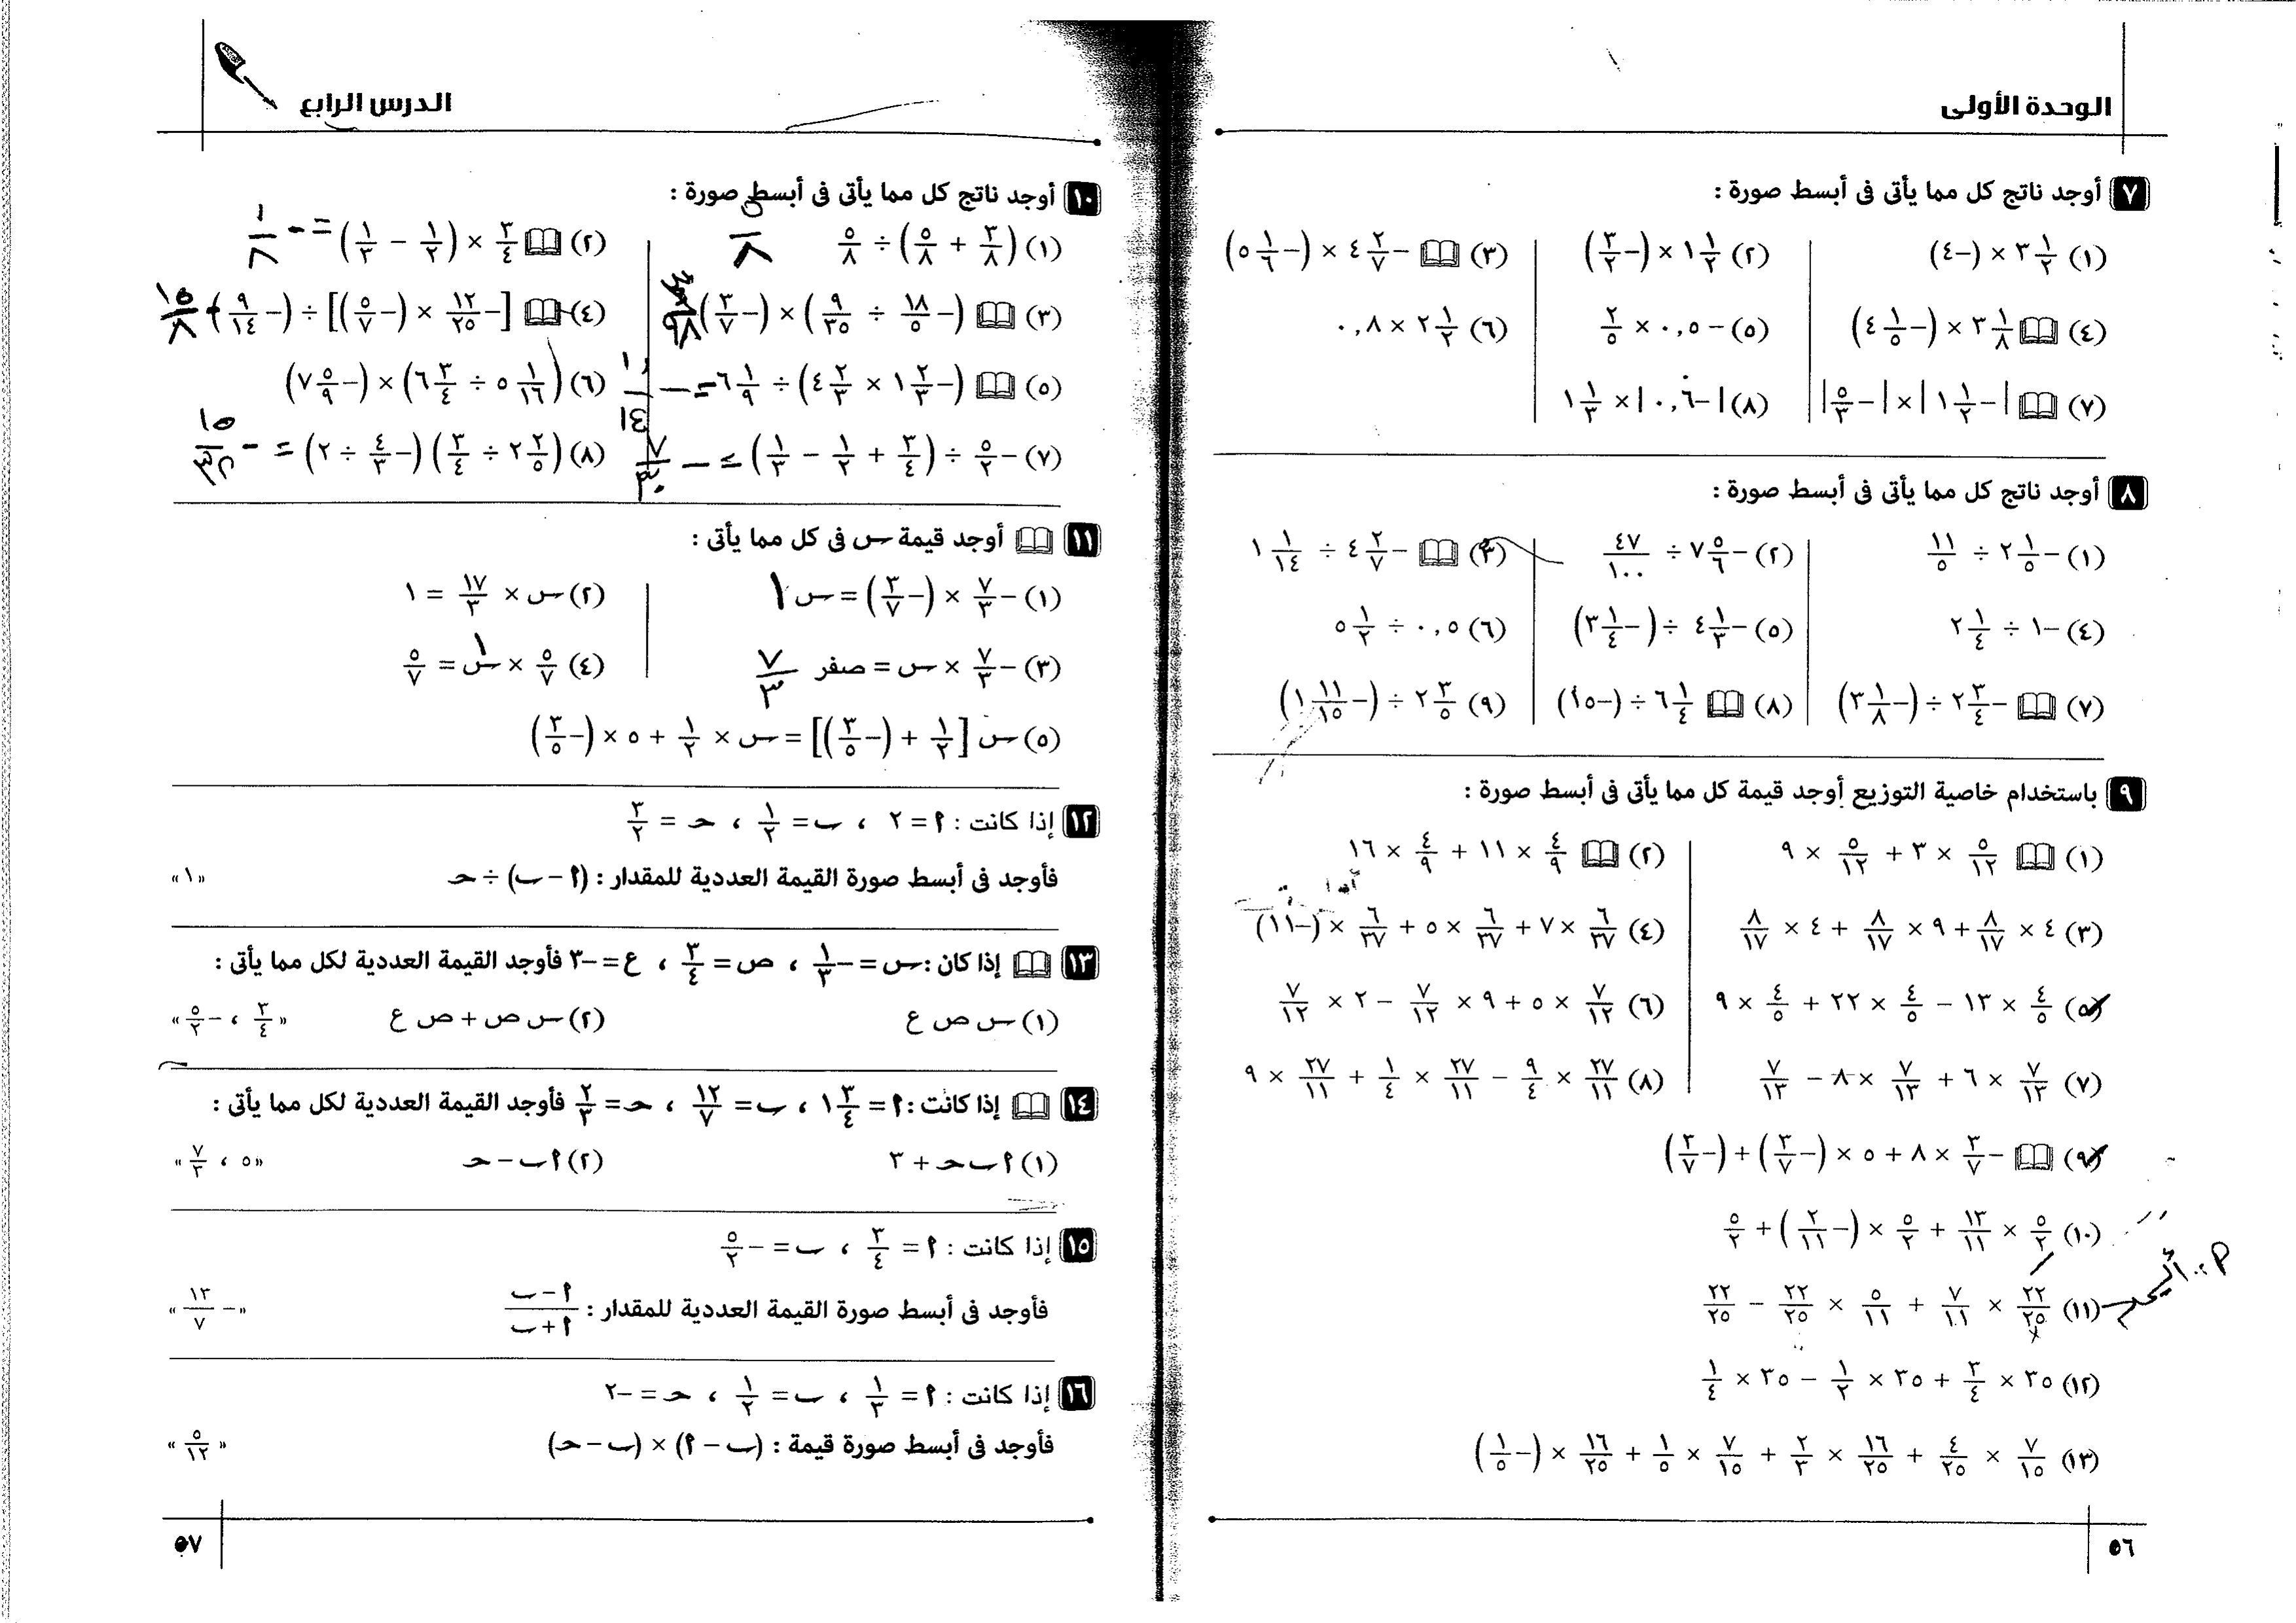 الوحدة الأولى
٧ أوجد ناتج كل مما يأتى فى أبسط صورة :
(١) ٣ ١/٢ × (−٤) (٢) ١ ١/٢ × (−٣/٢) (٣) −٤ ٢/٧ × (−٥ ١/٦)
(٤) ٣ ١/٨ × (−٤ ١/٥) (٥) −٠,٥ × ٢/٥ (٦) ٢ ١/٢ × ٠,٨
(٧) |−١ ١/٢| × |−٥/٣| (٨) |−٠,٦| × ١ ١/٣
٨ أوجد ناتج كل مما يأتى فى أبسط صورة :
(١) −٢ ١/٥ ÷ ١١/٥ (٢) −٧ ٥/٦ ÷ ٤٧/١٠٠ (٣) −٤ ٢/٧ ÷ ١ ١/١٤
(٤) −١ ÷ ٢ ١/٤ (٥) −٤ ١/٣ ÷ (−٣ ١/٤) (٦) ٠,٥ ÷ ٥ ١/٢
(٧) −٢ ٣/٤ ÷ (−٣ ١/٨) (٨) ٦ ١/٤ ÷ (−١٥) (٩) ٢ ٣/٥ ÷ (−١ ١١/١٥)
٩ باستخدام خاصية التوزيع أوجد قيمة كل مما يأتى فى أبسط صورة :
(١) ٥/١٢ × ٣ + ٥/١٢ × ٩ (٢) ٤/٩ × ١١ + ٤/٩ × ١٦
(٣) ٤ × ٨/١٧ + ٩ × ٨/١٧ + ٤ × ٨/١٧ (٤) ٦/٣٧ × ٧ + ٦/٣٧ × ٥ + ٦/٣٧ × (−١١)
(٥) ٤/٥ × ١٣ − ٤/٥ × ٢٢ + ٤/٥ × ٩ (٦) ٧/١٢ × ٥ + ٩ × ٧/١٢ − ٢ × ٧/١٢
(٧) ٧/١٣ × ٦ + ٧/١٣ × ٨ − ٧/١٣ (٨) ٢٧/١١ × ٩/٤ − ٢٧/١١ × ١/٤ + ٢٧/١١ × ٩
(٩) −٣/٧ × ٨ + ٥ × (−٣/٧) + (−٣/٧)
(١٠) ٥/٢ × ١٣/١١ + ٥/٢ × (−٢/١١) + ٥/٢
(١١) ٢٢/٢٥ × ٧/١١ + ٥/١١ × ٢٢/٢٥ − ٢٢/٢٥
(١٢) ٣٥ × ٣/٤ + ٣٥ × ١/٢ − ٣٥ × ١/٤
(١٣) ٧/١٥ × ٤/٢٥ + ١٦/٢٥ × ٢/٣ + ٧/١٥ × ١/٥ + ١٦/٢٥ × (−١/٥)
٥٦
الدرس الرابع
١٠ أوجد ناتج كل مما يأتى فى أبسط صورة :
(١) (٣/٨ + ٥/٨) ÷ ٥/٨ (٢) ٣/٤ × (١/٢ − ١/٣) = − ١/٨
(٣) (−١٨/٥ ÷ ٩/٣٥) × (−٣/٧) (٤) [−١٢/٢٥ × (−٥/٧)] ÷ (−٩/١٤) ١٥/٨
(٥) (−١ ٢/٣ × ٤ ٢/٣) ÷ ٦ ١/٩ = − (٦) (٥ ١/١٦ ÷ ٦ ٣/٤) × (−٧ ٥/٩)
(٧) −٥/٢ ÷ (٣/٤ + ١/٢ − ١/٣) = − ٧/٣٠ (٨) (٢ ٢/٥ ÷ ٣/٤) (−٤/٣ ÷ ٢) = − ١٥/٣٢
١١ أوجد قيمة س فى كل مما يأتى :
(١) −٧/٣ × (−٣/٧) = س ١ (٢) س × ١٧/٣ = ١
(٣) −٧/٣ × س = صفر ٧/٣ (٤) ٥/٧ × س = ٥/٧ ١
(٥) س [١/٢ + (−٣/٥)] = س × ١/٢ + ٥ × (−٣/٥)
١٢ إذا كانت : ا = ٢ ، ب = ١/٢ ، حـ = ٣/٢
فأوجد فى أبسط صورة القيمة العددية للمقدار : (ا − ب) ÷ حـ «١»
١٣ إذا كان : س = −١/٣ ، ص = ٣/٤ ، ع = −٣ فأوجد القيمة العددية لكل مما يأتى :
(١) س ص ع (٢) س ص + ص ع «٣/٤ ، −٥/٢»
١٤ إذا كانت : ا = ١ ٣/٤ ، ب = ١٢/٧ ، حـ = ٢/٣ فأوجد القيمة العددية لكل مما يأتى :
(١) ا ب حـ + ٣ (٢) ا ب − حـ «٥ ، ٧/٣»
١٥ إذا كانت : ا = ٣/٤ ، ب = −٥/٢
فأوجد فى أبسط صورة القيمة العددية للمقدار : (ا − ب)/(ا + ب) «−١٣/٧»
١٦ إذا كانت : ا = ١/٣ ، ب = ١/٢ ، حـ = −٢
فأوجد فى أبسط صورة قيمة : (ب − ا) × (ب − حـ) «٥/١٢»
٥٧